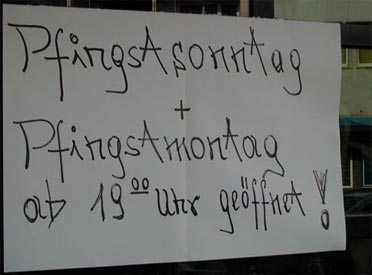 Pfingstsonntag
+
Pfingstmontag
ab 19⁰⁰ Uhr geöffnet!